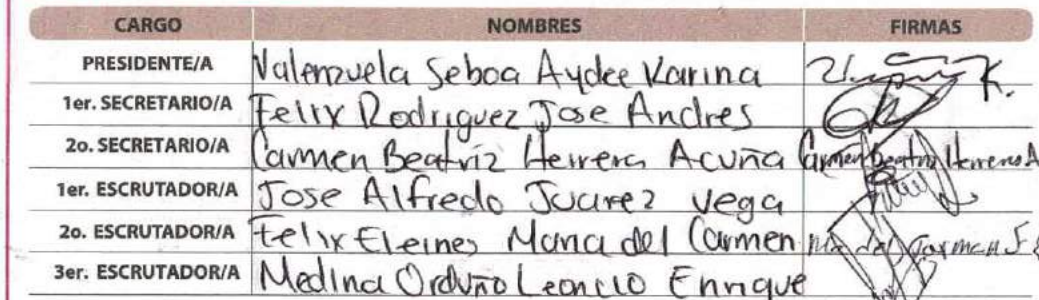 CARGO NOMBRES FIRMAS
PRESIDENTE/A Valenzuela Seboa Aydee Karina
1er. SECRETARIO/A Felix Rodriguez Jose Andres
2o. SECRETARIO/A Carmen Beatriz Herrera Acuña Carmen Beatriz Herrera A
1er. ESCRUTADOR/A Jose Alfredo Juarez Vega
2o. ESCRUTADOR/A Felix Eleines Maria del Carmen Ma del Carmen F E
3er. ESCRUTADOR/A Medina Orduño Leoncio Enrique